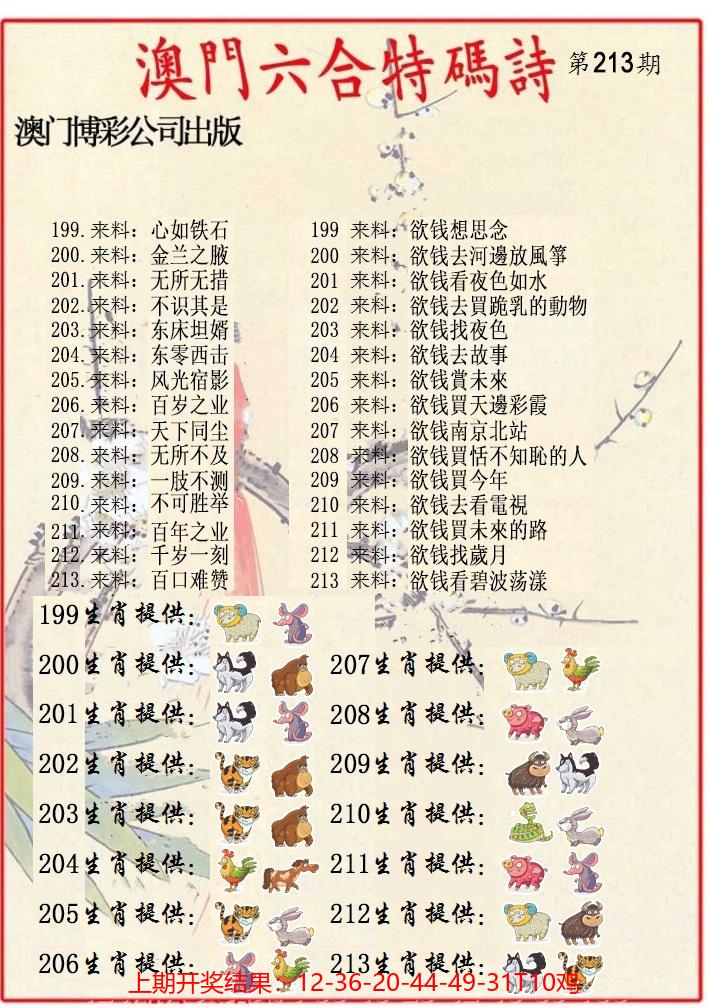 澳門六合特碼詩 第213期
澳门博彩公司出版
199.来料：心如铁石
200.来料：金兰之腋
201.来料：无所无措
202.来料：不识其是
203.来料：东床坦婿
204.来料：东零西击
205.来料：风光宿影
206.来料：百岁之业
207.来料：天下同尘
208.来料：无所不及
209.来料：一肢不测
210.来料：不可胜举
211.来料：百年之业
212.来料：千岁一刻
213.来料：百口难赞
199 来料：欲钱想思念
200 来料：欲钱去河邊放風箏
201 来料：欲钱看夜色如水
202 来料：欲钱去買跪乳的動物
203 来料：欲钱找夜色
204 来料：欲钱去故事
205 来料：欲钱賞未來
206 来料：欲钱買天邊彩霞
207 来料：欲钱南京北站
208 来料：欲钱買恬不知恥的人
209 来料：欲钱買今年
210 来料：欲钱去看電視
211 来料：欲钱買未來的路
212 来料：欲钱找歲月
213 来料：欲钱看碧波荡漾
199生肖提供：
200生肖提供：
201生肖提供：
202生肖提供：
203生肖提供：
204生肖提供：
205生肖提供：
206生肖提供：
207生肖提供：
208生肖提供：
209生肖提供：
210生肖提供：
211生肖提供：
212生肖提供：
213生肖提供：
上期开奖结果：12-36-20-44-49-31T10鸡